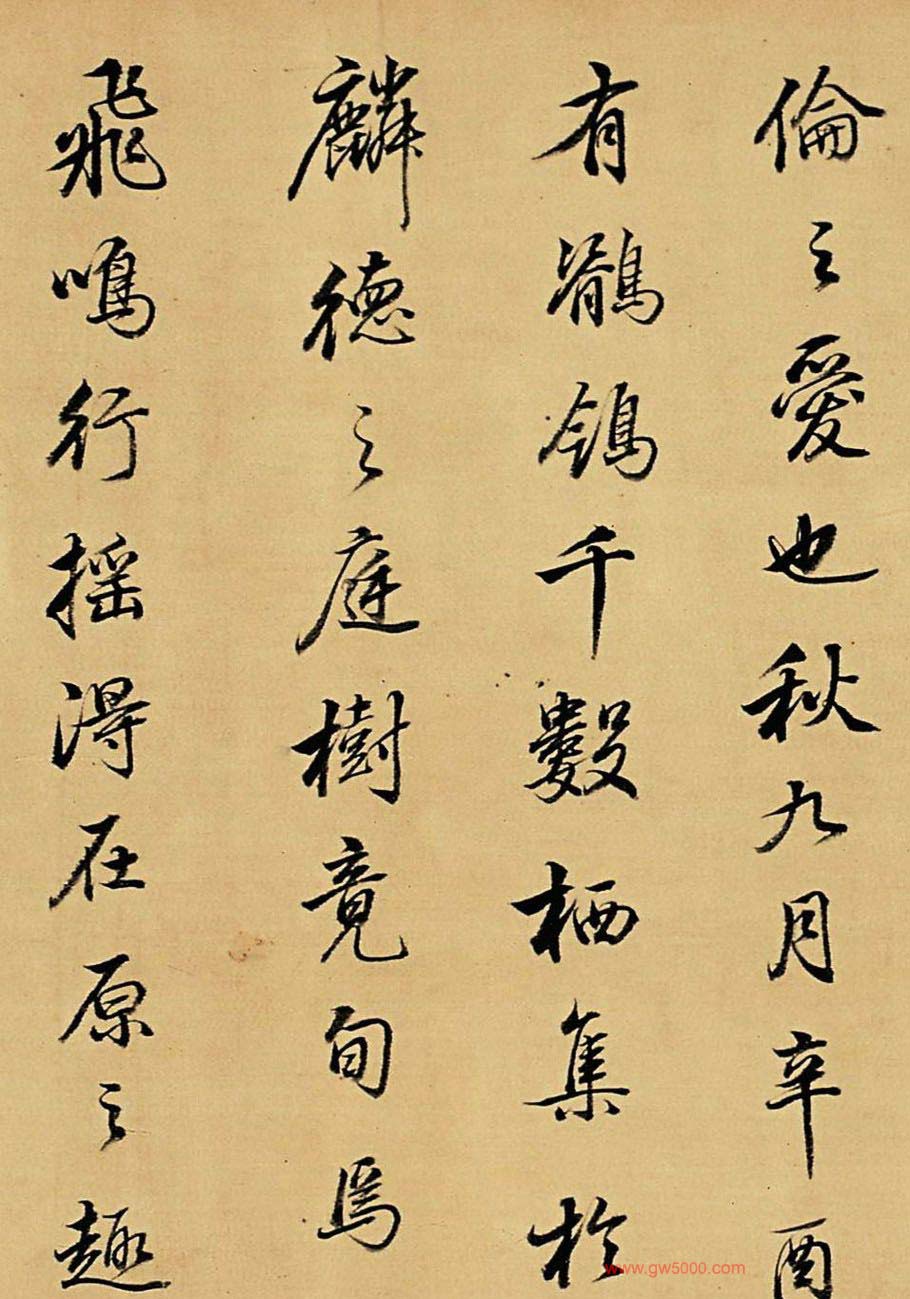 倫之愛也秋九月辛酉
有鶺鴒千數栖集於
麟德之庭樹竟旬焉
飛鳴行摇得在原之趣
www.gw5000.com